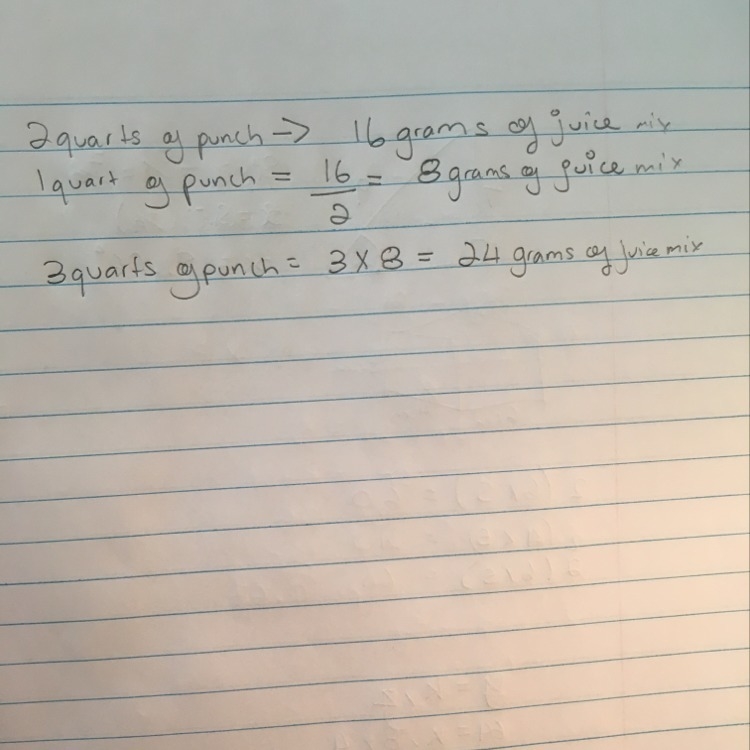 2 quarts of punch → 16 grams of juice mix
1 quart of punch = 16/2 = 8 grams of juice mix
3 quarts of punch = 3 x 8 = 24 grams of juice mix